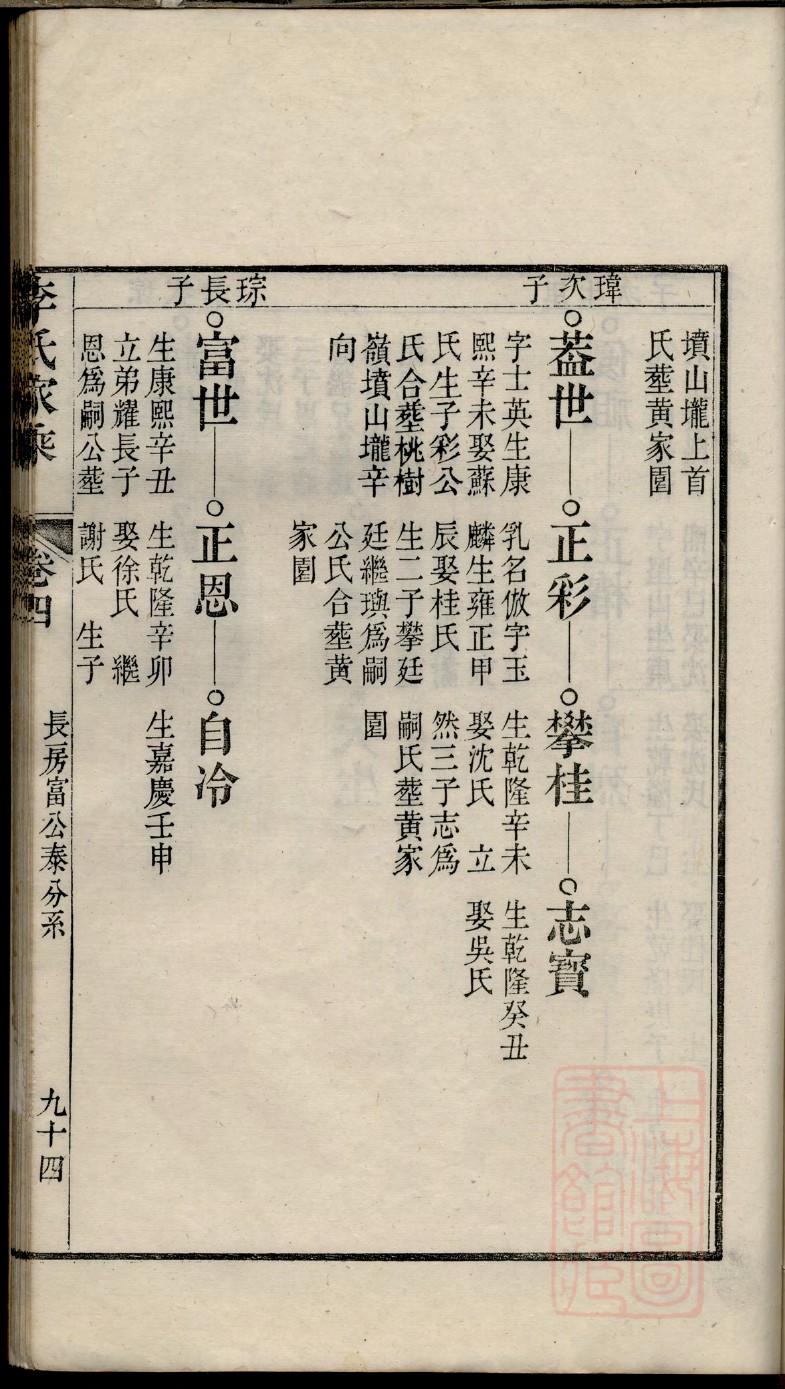 墳山壠上首
氏塟黃家園
瑋次子
葢世
字士英生康
熙辛未娶蘇
氏生子彩公
氏合塟桃樹
嶺墳山壠辛
向
正彩
乳名倣字玉
麟生雍正甲
辰娶桂氏
生二子攀廷
廷繼璵爲嗣
公氏合塟黃
家園
攀桂
生乾隆辛未
娶沈氏 立
然三子志爲
嗣氏塟黃家
園
志寳
生乾隆癸丑
娶吳氏
琮長子
富世
生康熙辛丑
立弟耀長子
恩爲嗣公塟
正恩
生乾隆辛卯
娶徐氏 繼
謝氏 生子
自冷
生嘉慶壬申
李氏家乘
卷四
長房富公泰分系
九十四
上海圖書館藏